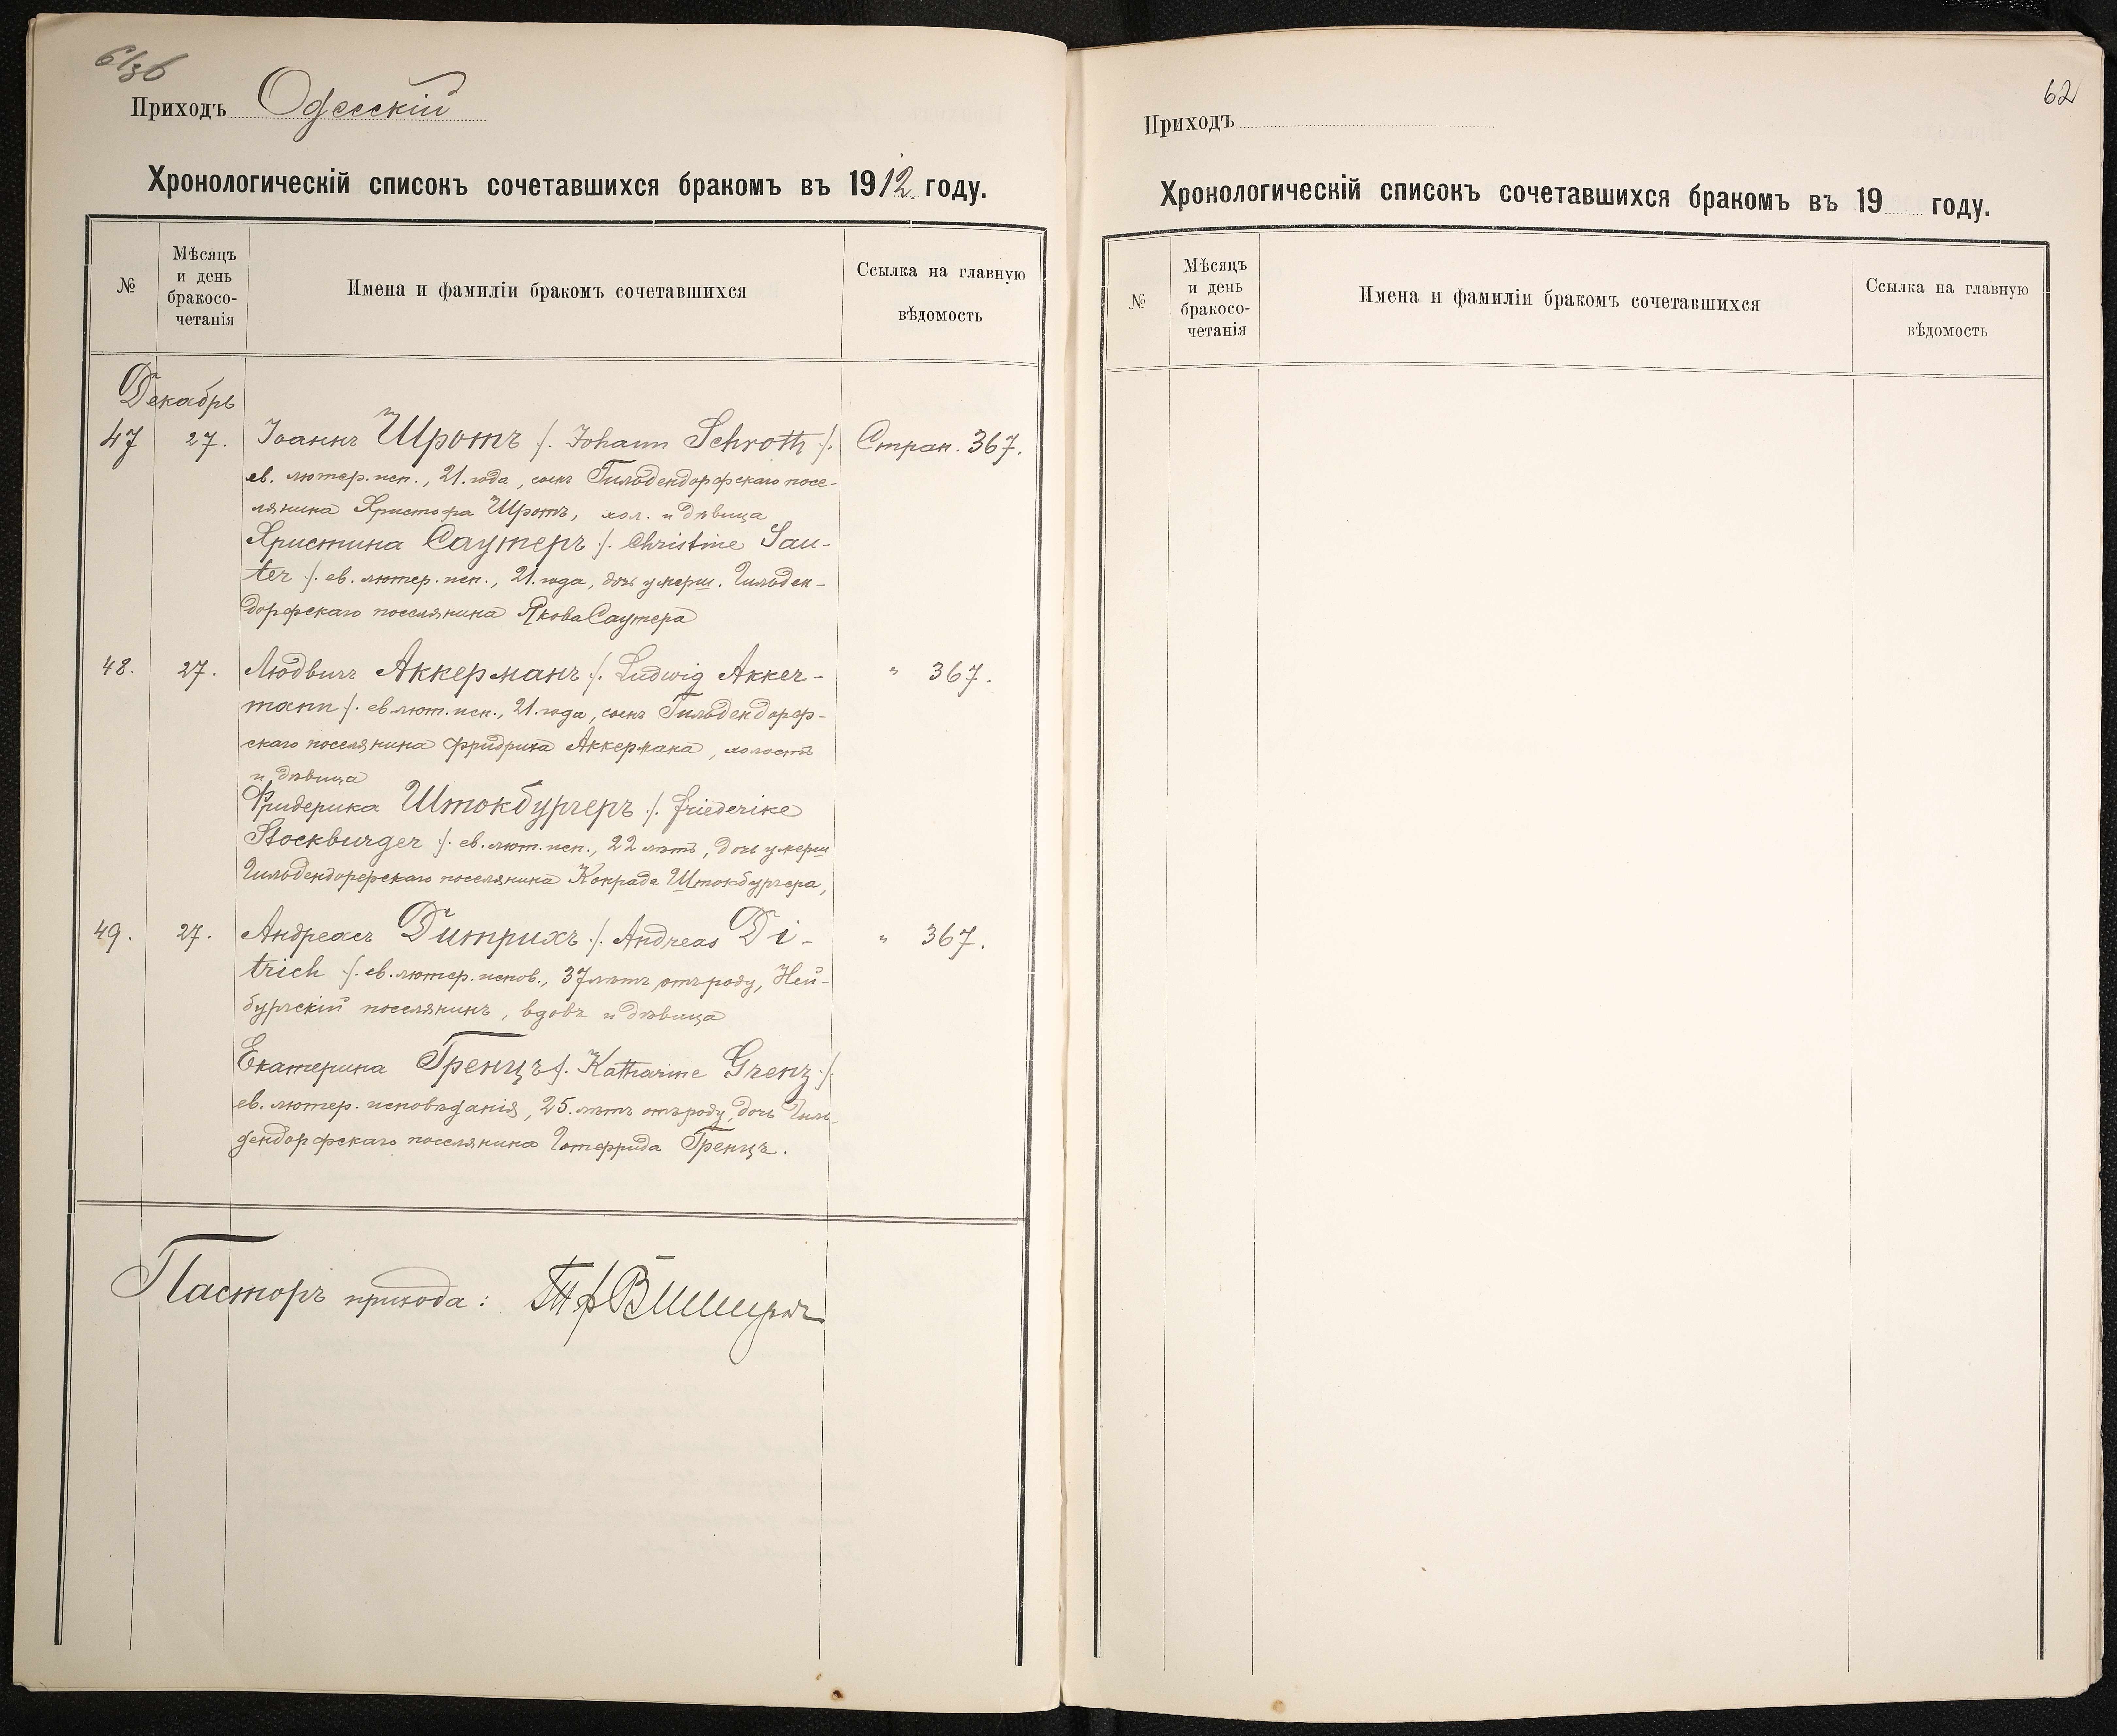 61зб
Приходъ Одесскій
Хронологическій списокъ сочетавшихся бракомъ въ 1912 году.
№
Мѣсяцъ
и день
бракосо-
четанія
Имена и фамиліи бракомъ сочетавшихся
Ссылка на главную
вѣдомость
Декабрь
47 27. Іоаннъ Шротъ /. Johann Schroth /. Стран. 367.
ев. лютер. исп., 21. года, сынъ Гильдендорфскаго посе-
лянина Христофа Шротъ, хол. и дѣвица
Христина Саутеръ /. Christine Sau-
ter /. ев. лютер. исп., 21. года, дочь умерш. Гильден-
дорфскаго поселянина Якова Саутера
48. 27. Людвигъ Аккерманъ /. Ludwig Akker- " 367.
mann /. ев. лют. исп., 21. года, сынъ Гильдендорф-
скаго поселянина Фридриха Аккермана, холостъ
и дѣвица
Фридерика Штокбургеръ /. Friederike
Stockburger /. ев. лют. исп., 22 лѣтъ, дочь умерш
Гильдендорфскаго поселянина Конрада Штокбургера,
49. 27. Андреасъ Дитрихъ /. Andreas Di- " 367.
trich /. ев. лютер. испов., 37 лѣтъ отъ роду, Ней-
бургскій поселянинъ, вдовъ и дѣвица
Екатерина Гренцъ /. Katharine Grenz /.
ев. лютер. исповѣданія, 25. лѣтъ отъ роду, дочь Гиль-
дендорфскаго поселянина Готфрида Гренцъ.
Пасторъ прихода:
62
Приходъ
Хронологическій списокъ сочетавшихся бракомъ въ 19 году.
№
Мѣсяцъ
и день
бракосо-
четанія
Имена и фамиліи бракомъ сочетавшихся
Ссылка на главную
вѣдомость